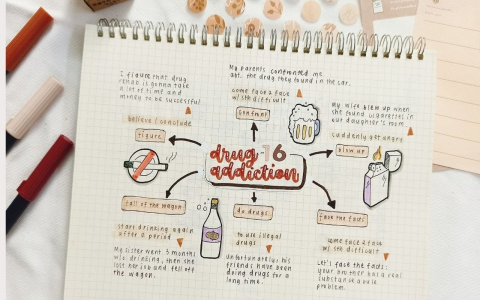 I figure that drug
rehab is gonna take
a lot of time and
money to be successful.
believe / conclude
figure
My parents confronted me
abt. the drug they found in the car.
come face a face
w/ sth difficult
confront
My wife blew up when
she found cigarettes in
our daughter's room.
suddenly get angry
blow up
drug 16
addiction
fall off the wagon
start drinking again
after a period
My sister went 3 months
w/o drinking, then she
lost her job and fell off
the wagon.
do drugs
to use illegal
drugs
Unfortunately, his
friends have been
doing drugs for a
long time.
face the facts
come face a face
w/ sth difficult
Let's face the facts:
your brother has a real
substance abuse
problem.